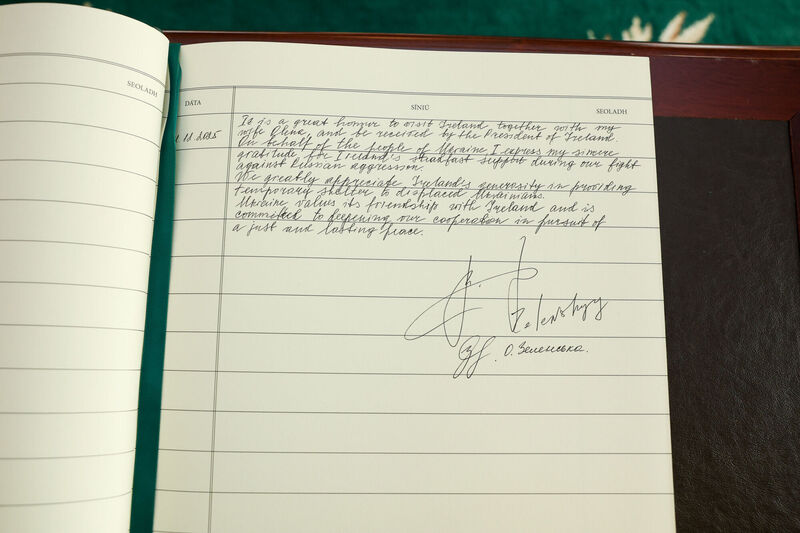 SEOLADH
DÁTA SÍNIÚ SEOLADH
It is a great honour to visit Ireland together with my
1.12.2025 wife Olena, and be received by the President of Ireland.
On behalf of the people of Ukraine I express my sincere
gratitude for Ireland's steadfast support during our fight
against Russian aggression.
We greatly appreciate Ireland's generosity in providing
temporary shelter to displaced Ukrainians.
Ukraine values its friendship with Ireland and is
committed to deepening our cooperation in pursuit of
a just and lasting peace.
Zelenskyy
О. Зеленська.